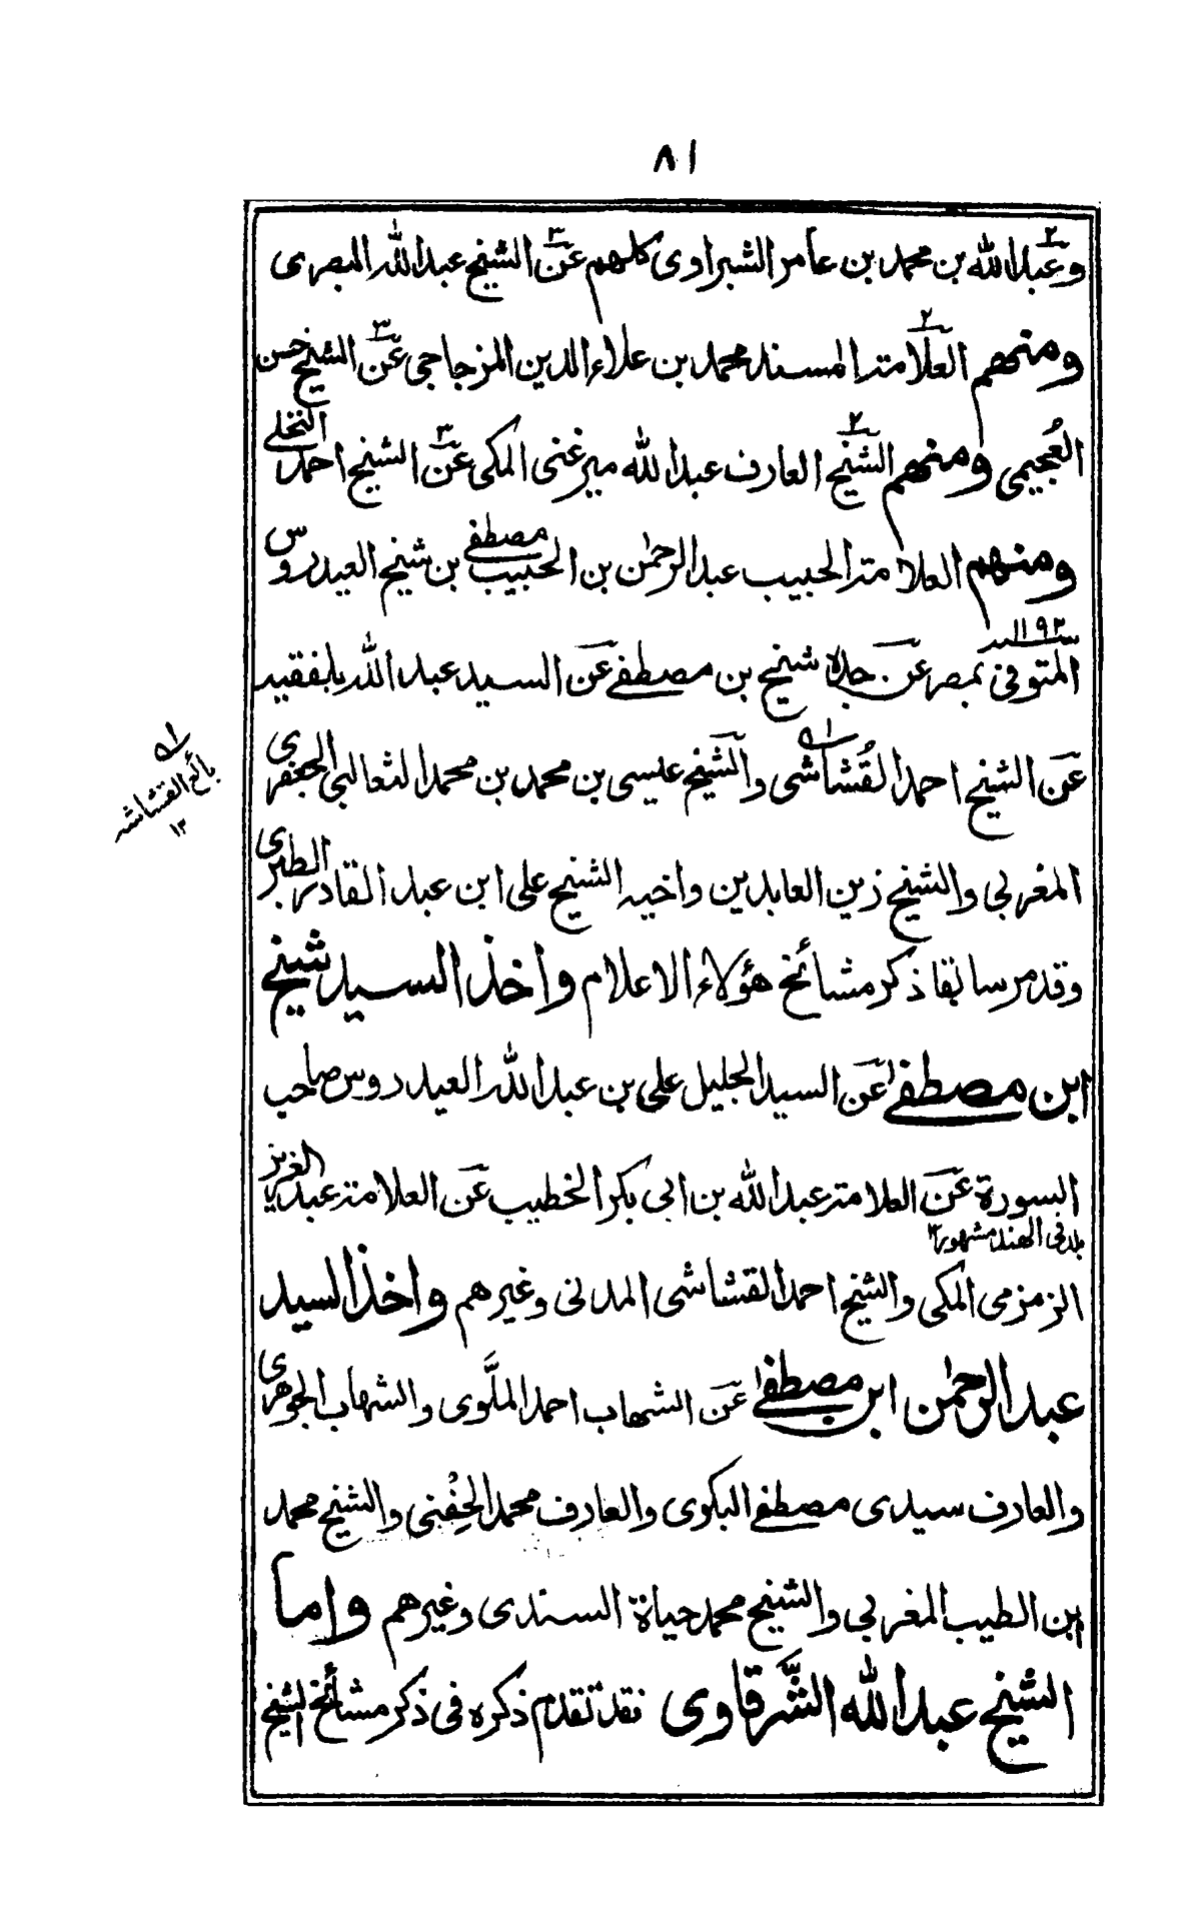 ٨١
وعبد الله بن محمد بن عامر الشبراوى كلهم عن الشيخ عبد الله البصرى
ومنهم العلامة المسند محمد بن علاء الدين المزجاجى عن الشيخ حسن
العُجيمى ومنهم الشيخ العارف عبد الله ميرغنى المكى عن الشيخ احمد النخلى
ومنهم العلامة الحبيب عبد الرحمٰن بن الحبيب مصطفى بن شيخ العيدروس
المتوفى بمصر ١١٩٢ عن جده شيخ بن مصطفى عن السيد عبد الله بلفقيه
عن الشيخ احمد القُشاشى والشيخ عيسى بن محمد بن محمد الثعالبى الجعفرى
المغربى والشيخ زين العابدين واخيه الشيخ على ابن عبد القادر الطبرى
وقد مر سابقا ذكر مشائخ هؤلاء الاعلام واخذ السيد شيخ
ابن مصطفى عن السيد الجليل على بن عبد الله العيدروس صاحب
السورة عن العلامة عبد الله بن ابى بكر الخطيب عن العلامة عبد العزيز
بلد فى الهند مشهور ١٢
الزمزمى المكى والشيخ احمد القشاشى المدنى وغيرهم واخذ السيد
عبد الرحمٰن ابن مصطفى عن الشهاب احمد الملَّوى والشهاب الجوهرى
والعارف سيدى مصطفى البكرى والعارف محمد الحِفْنى والشيخ محمد
ابن الطيب المغربى والشيخ محمد حياة السندى وغيرهم واما
الشيخ عبد الله الشَّرقاوى فقد تقدم ذكره فى ذكر مشائخ الشيخ